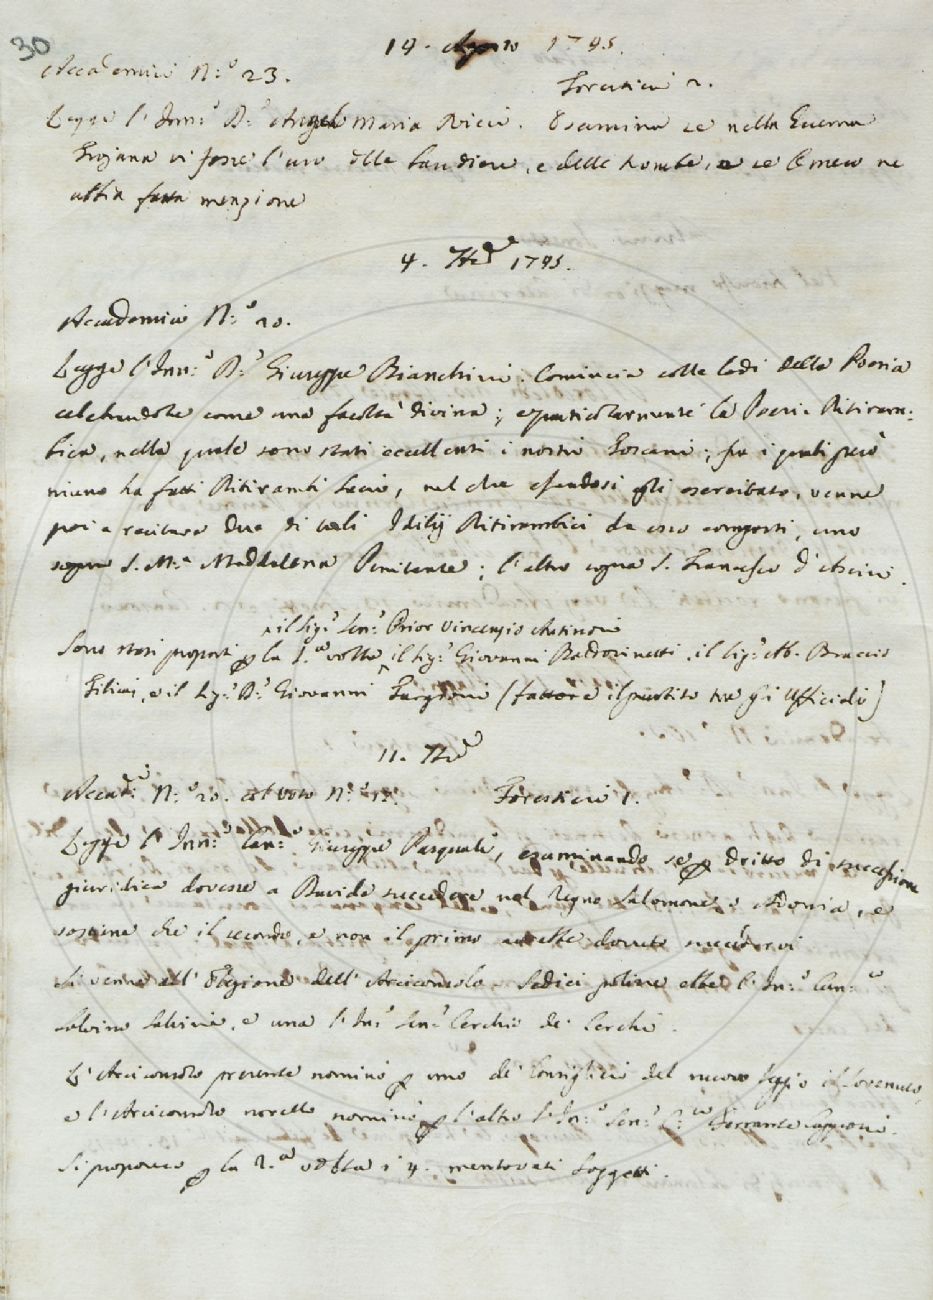 30
14. Agosto 1745.
Accademici N.º 23. Forestieri 2.
Legge l'Inn.º D.r Angel Maria Ricci. Esamina se nella Guerra
Trojana vi fosse l'uso delle bandiere, e delle trombe, e se Omero ne
abbia fatta menzione
4. 7bre 1745.
Accademici N.º 20.
Legge l'Inn.º D.r Giuseppe Bianchini. Comincia colle lodi della Poesia
celebandole come una facoltà divina; e particolarmente la Poesia Ditiram-
bica, nella quale sono stati eccellenti i nostri Toscani; fra i quali però
niuno ha fatti Ditirambi Sacri, nel che essendosi egli esercitato, venne
poi a recitare due di tali Idilij Ditirambici da esso composti, uno
sopra S. M.a Maddalena Penitente; l'altro sopra S. Francesco d'Assisi.
il Sig.r Sen.r Prior Vincenzio
Sono stati proposti p la 1.a volta il Sig.r Giovanni il Sig.r Ab. Braccio
e il Sig.r D.r Giovanni Targioni (fattone il partito tra gli Ufficiali)
11. 7bre
Accad.ci N.º 20. Forestieri 1.
Legge l'Inn.º Can.º Giuseppe Pasquali, esaminando se p dritto di successione
giuridica dovesse a Davide succedere nel Regno Salomone, o Adonia, e
sostiene che il secondo, e non il primo avrebbe dovuto succedervi
Si venne all'Elezione dell'Arciconsolo. Sedici polizze ebbe l'In.º Can.º
Salvino Salvini, e una l'In.º Sen.r Cerchio de' Cerchi.
L'Arciconsolo presente nominò p uno de' Consiglieri del nuovo Seggio
e l'Arciconsolo novello nominò p l'altro l'In.º Sen.r Ferrante Capponi.
Si proposero p la 2.a volta i 4. mentovati Soggetti.